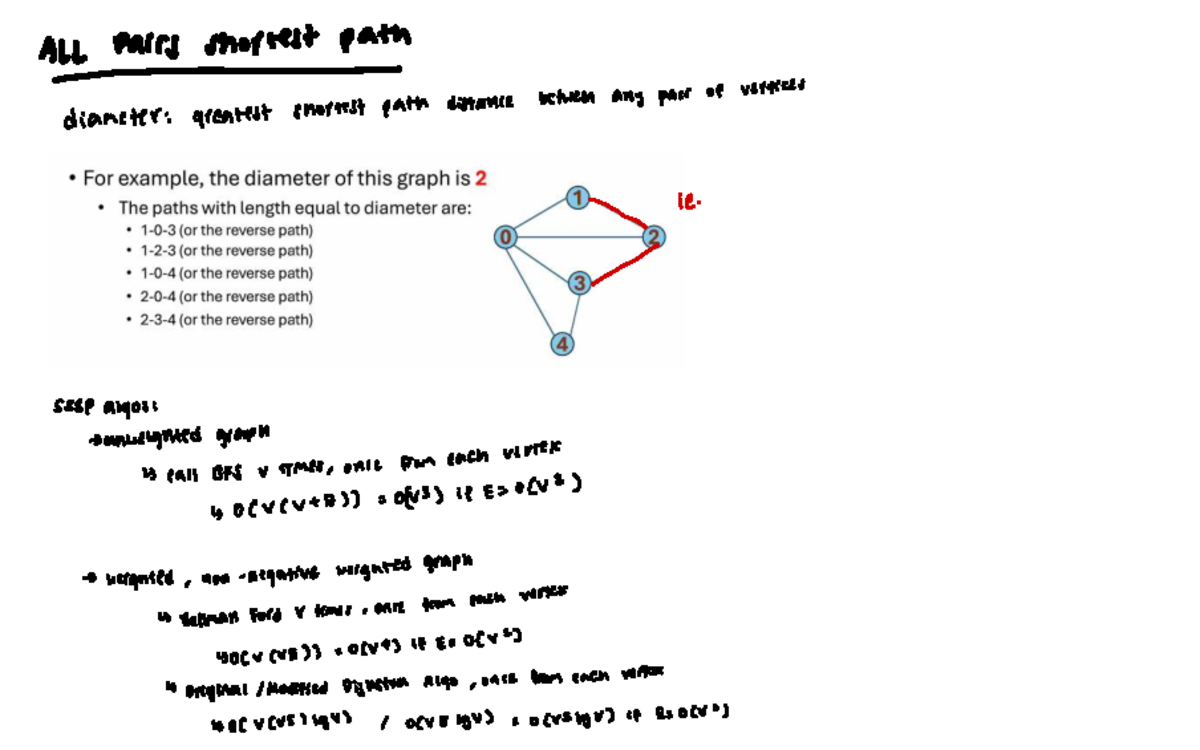 ALL Pairs shortest path
diameter: greatest shortest path distance between any pair of vertices
• For example, the diameter of this graph is 2
• The paths with length equal to diameter are:
• 1-0-3 (or the reverse path)
• 1-2-3 (or the reverse path)
• 1-0-4 (or the reverse path)
• 2-0-4 (or the reverse path)
• 2-3-4 (or the reverse path)
1
ie.
0
2
3
4
SSSP algos:
→ unweighted graph
↳ call BFS V times, once from each vertex
↳ O(V(V+E)) = O(V³) if E = O(V²)
→ weighted, non-negative weighted graph
↳ Bellman Ford V times, once from each vertex
↳ O(V(VE)) = O(V⁴) if E = O(V²)
↳ Original / Modified Dijkstra algo, once from each vertex
↳ lgV) / O(VE lgV) = O(V³ lgV) if E = O(V²)